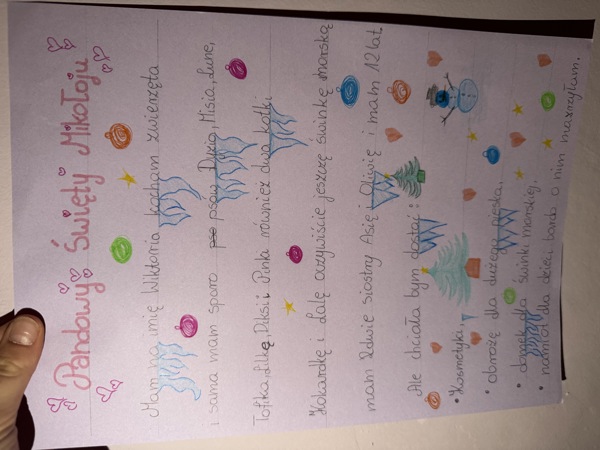 Pandowy Święty Mikołoju
Mam na imię Wiktoria kocham zwierzęta
i sama mam sporo pso psów Dyzia, Misia, Lune,
Tofika, Lilkę, Diksi i Pinka również dwa kotki
Kokardkę i Lalę oczywiście jeszczę świnkę morską
mam 2dwie siostry Asię i Oliwię i mam 12 lat.
Ale chciała bym dostać:
• Kosmetyki,
• obrożę dla dużego pieska,
• domek dla świnki morskiej,
• namiot dla dzieci bardo o nim marzyłam.